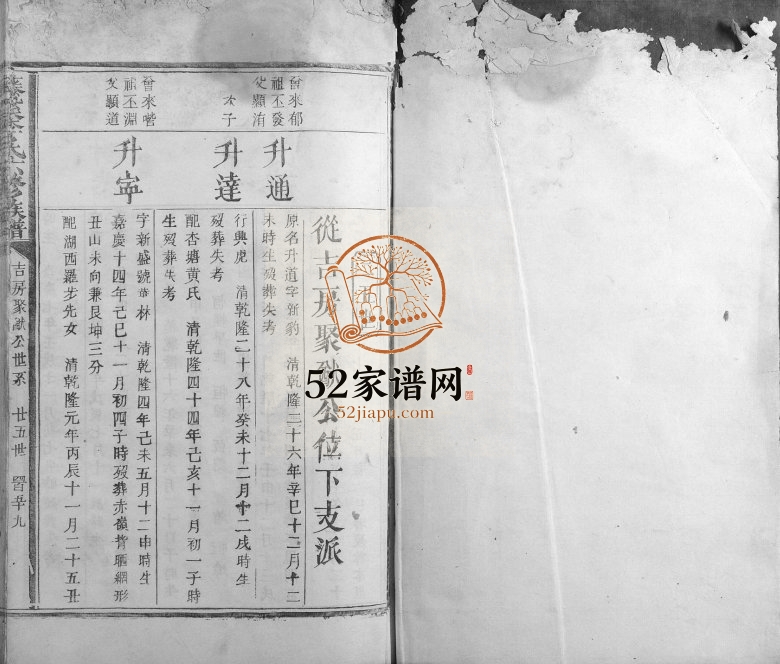 從吉房聚猷公位下支派
曾來郁
祖丕發
父顯洧
升通
原名升道字新豹 清乾隆二十六年辛巳十二月十二
未時生歿葬失考
次子
升達
行典虎 清乾隆二十八年癸未十二月十二戌時生
歿葬失考
配杏塘黄氏 清乾隆四十四年己亥十一月初一子時
生歿葬失考
曾來喈
祖丕淵
父顯道
升寧
字新盛號 林 清乾隆四年己未五月十二申時生
嘉慶十四年己巳十一月初四子時歿葬赤嶺背晒綱形
丑山未向兼艮坤三分
配湖西羅步先女 清乾隆元年丙辰十一月二十五丑
氏 修族譜
吉房聚猷公世系 廿五世
52家谱网
52jiapu.com